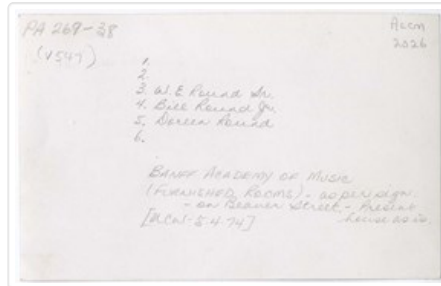 PA 269-38
Accn
2026
(V547)
1.
2.
3. W.E Round Sr.
4. Bill Round Jr.
5. Doreen Round
6.
BANFF ACADEMY OF MUSIC
(FURNISHED ROOMS) - as per sign.
- on Beaver Street - Present
house as is.
[MCW-5-4-74]